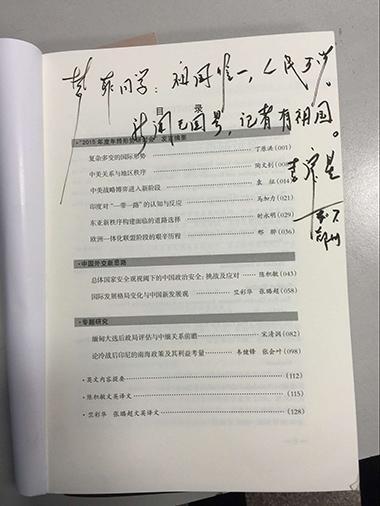 菲同学：祖国唯一，人民至尚。
目 录
新闻无国界，记者有祖国。
·"2015年度年终形势研讨会"发言摘要
复杂多变的国际形势 丁原洪(001)
中美关系与地区秩序 陶文钊
中美战略博弈进入新阶段 袁 征(014)
印度对"一带一路"的认知与反应 马加力(021)
东亚新秩序构建面临的道路选择 时永明(029)
欧洲一体化联盟阶段的艰辛历程 邢 骅(036)
·中国外交新思路
总体国家安全观视阈下的中国政治安全：挑战及应对 陈积敏(043)
国际发展格局变化与中国新发展观 竺彩华 张璐超(058)
·专题研究
缅甸大选后政局评估与中缅关系前瞻 宋清润(082)
论冷战后印尼的南海政策及其利益考量 韦健锋 张会叶(098)
·英文内容提要 (112)
·陈积敏文英译文 (115)
·竺彩华 张璐超文英译文 (128)